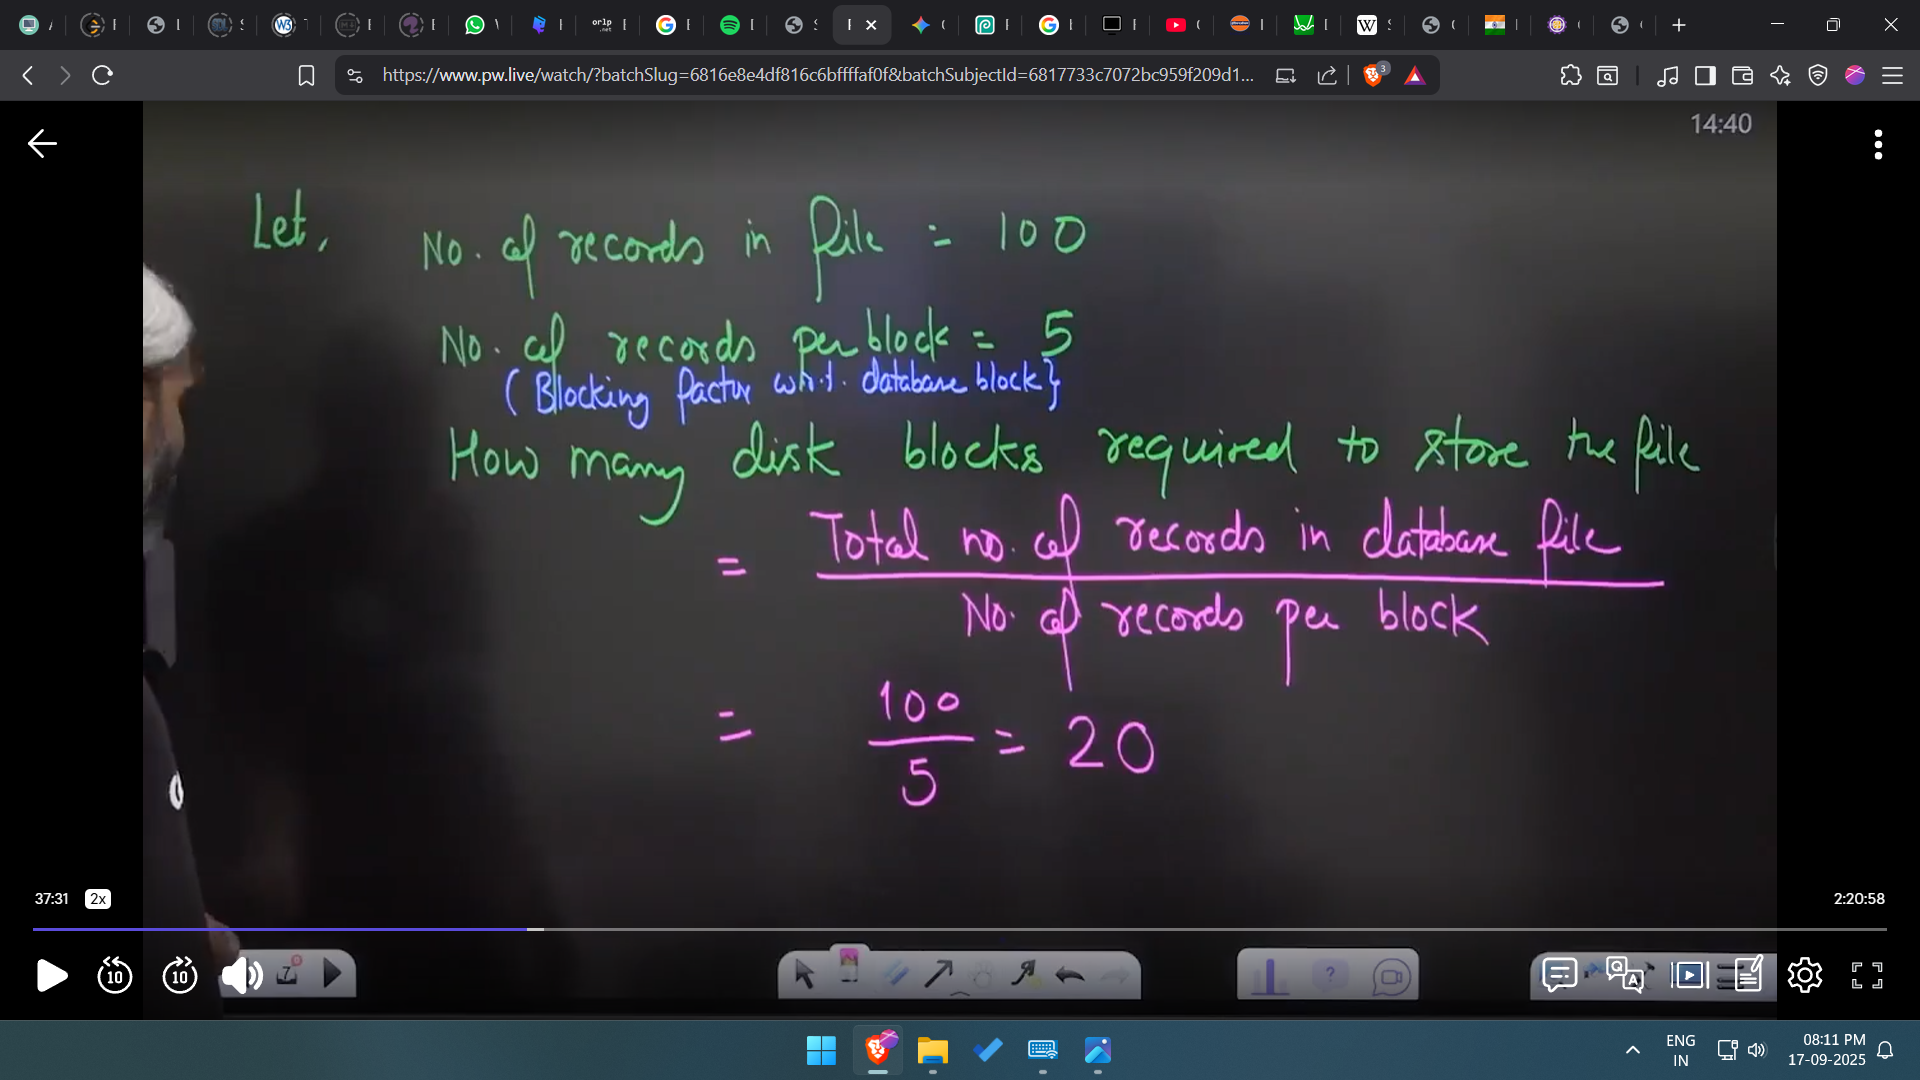 https://www.pw.live/watch/?batchSlug=6816e8e4df816c6bffffaf0f&batchSubjectId=6817733c7072bc959f209d1...
3
14:40
Let, No. of records in file = 100
No. of records per block = 5
(Blocking factor w.r.t. database block}
How many disk blocks required to store the file
= Total no. of records in database file
No. of records per block
= 100
5
= 20
37:31 2x 2:20:58
10 10 7
ENG
IN
08:11 PM
17-09-2025